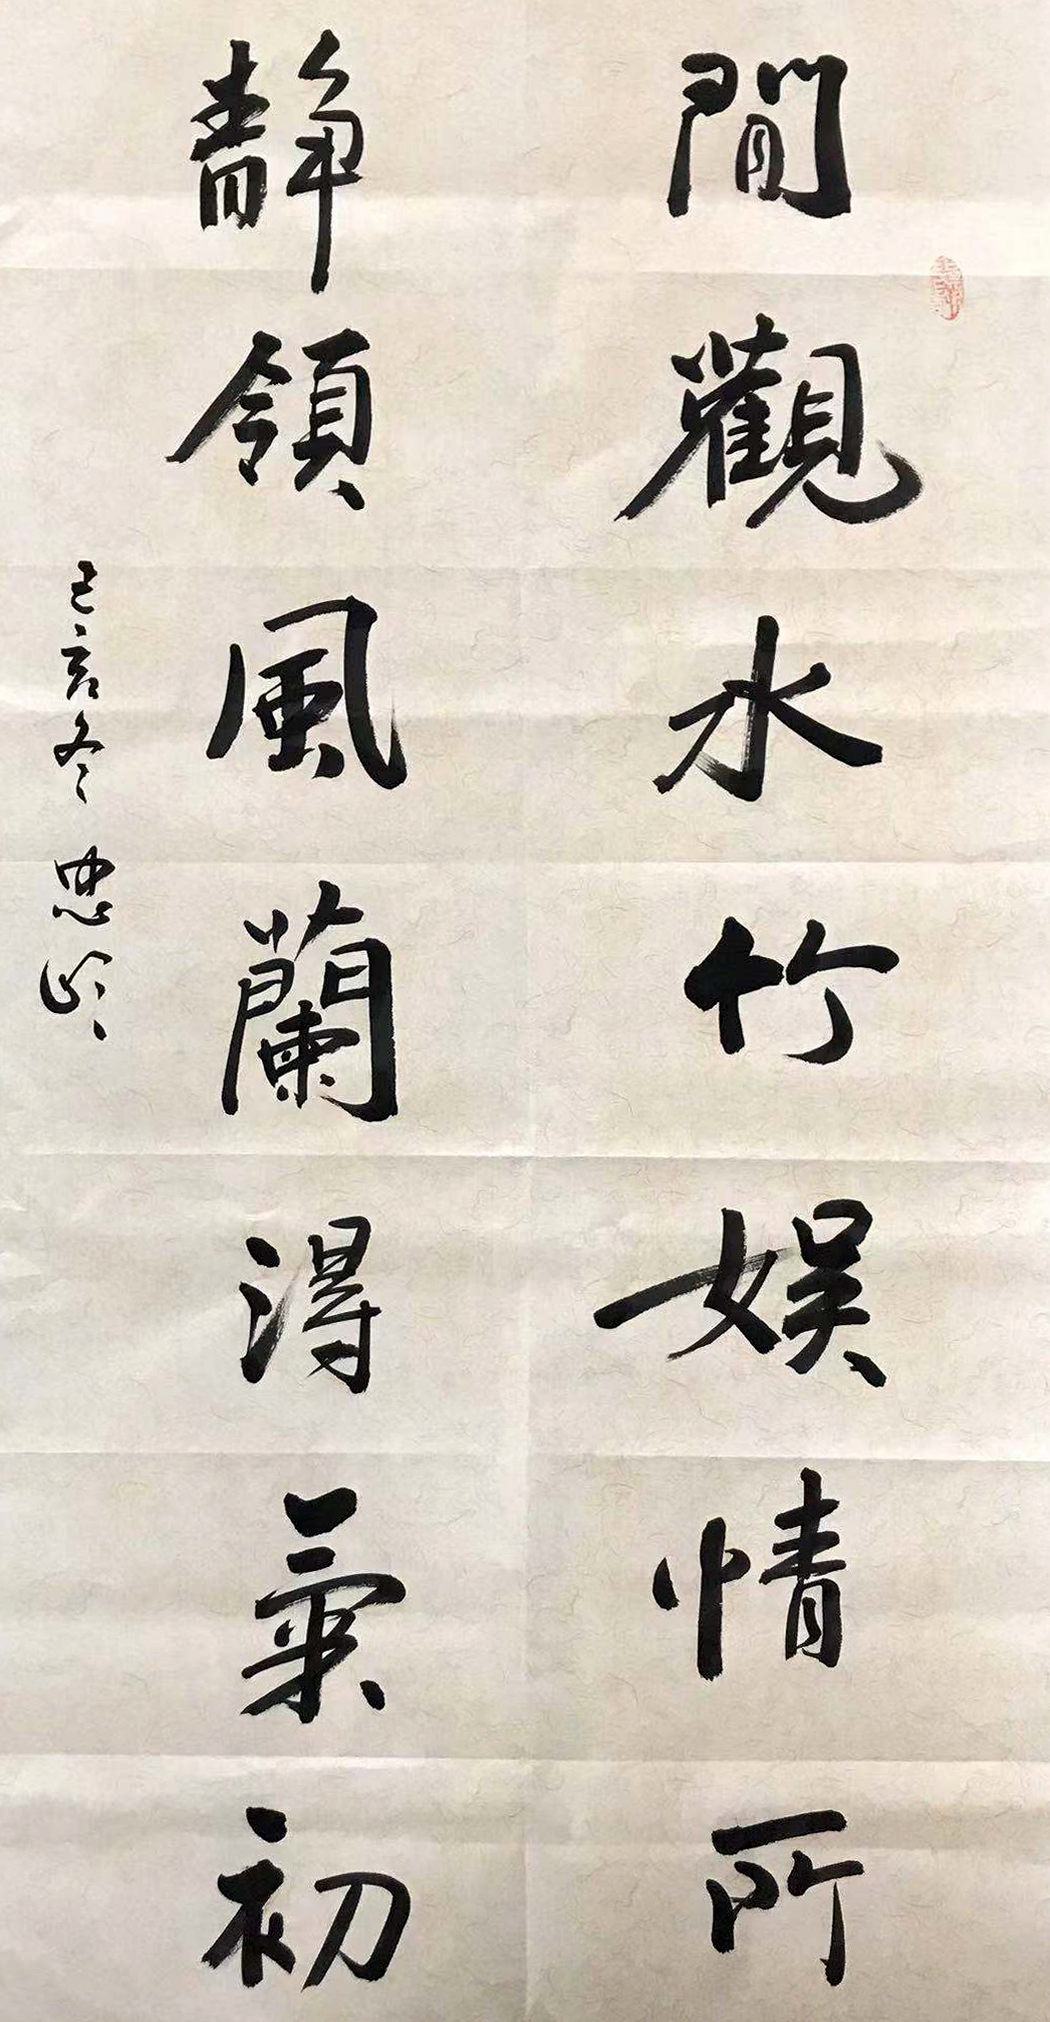 閒觀水竹娱情所
靜領風蘭得氣初
己亥冬 忠